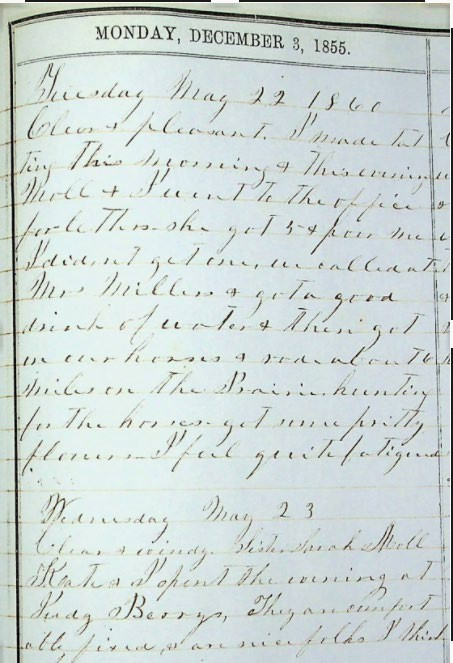 MONDAY, DECEMBER 3, 1855.
Tuesday May 22 1860
Clear & pleasant. I made tat
ting this morning & this evening
Moll & I went to the office
for letters she got 5 & poor me
I didn't get one, we called at
Mrs Millers & got a good
drink of water & then got
on our horses & rode about 6
miles on the Prairie hunting
for the horses got some pritty
flowers I feel quite fatigued
Wednesday May 23
Clear & windy. Sister Sarah Moll
Kate & I spent the evening at
Judg Berrys, They are comfort
ably fixed, & are nice folks I think